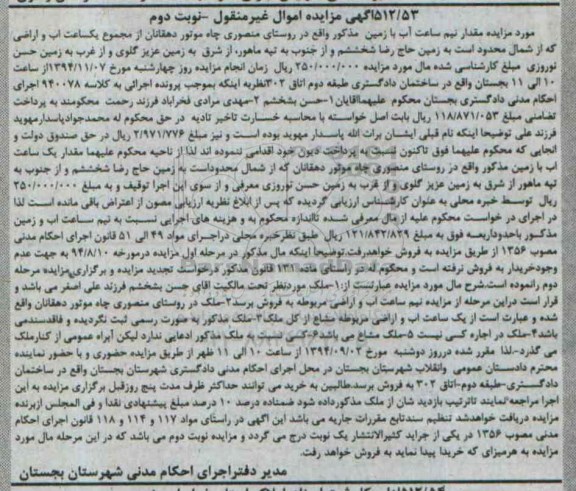 ۵۱۲/۵۳آگهی مزایده اموال غیرمنقول -نوبت دوم
مورد مزایده مقدار نیم ساعت آب با زمین مذکور واقع در روستای منصوری چاه موتور دهقانان از مجموع یکساعت آب و اراضی
که از شمال محدود است به زمین حاج رضا شخشتم و از جنوب به تپه ماهور، از شرق به زمین عزیز گلوی و از غرب به زمین حسن
نوروزی مبلغ کارشناسی شده مال مورد مزایده ۲۵۰/۰۰۰/۰۰۰ ریال زمان انجام مزایده روز چهارشنبه مورخ ۱۳۹۴/۱۱/۰۷از ساعت
۱۰ الی ۱۱ بجستان واقع در ساختمان دادگستری طبقه دوم اتاق ۳۰۲نظریه اینکه بموجب پرونده اجرائی به کلاسه ۹۴۰۰۷۸ اجرای
احکام مدنی دادگستری بجستان محکوم علیهماآقایان ۱-حسن بشخشم ۲-مهدی مرادی فخرآباد فرزند رحمت محکومند به پرداخت
تضامنی مبلغ ۱۱۸/۸۷۱/۰۵۳ ریال بابت اصل خواسته با محاسبه خسارت تاخیر تادیه در حق محکوم له محمدجوادپاسدارمهوید
فرزند علی توضیحا اینکه نام قبلی ایشان برات الله پاسدار مهوید بوده است و نیز مبلغ ۲/۹۷۱/۷۷۶ ریال در حق صندوق دولت و
آنجایی که محکوم علیهما فوق تاکنون نسبت به پرداخت دیون خود اقدامی ننموده اند لذا از ناحیه محکوم علیهما مقدار یک ساعت
آب با زمین مذکور واقع در روستای منصوری چاه موتور دهقانان که از شمال محدوداست به زمین حاج رضا شخشتم و از جنوب به
تپه ماهور از شرق به زمین عزیز گلوی و از غرب به زمین حسن نوروزی معرفی و از سوی این اجرا توقیف و به مبلغ ۲۵۰/۰۰۰/۰۰۰
ریال توسط خبره محلی به عنوان کارشناس ارزیابی گردیده که پس از ابلاغ نظریه ارزیابی مصون از اعتراض باقی مانده است لذا
در اجرای در خواست محکوم علیه از مال معرفی شده تااندازه محکوم به و هزینه های اجرایی نسبت به نیم ساعت آب و زمین
مذکور باحدوداربعه فوق به مبلغ ۱۲۱/۸۴۲/۸۲۹ ریال طبق نظرخبره محلی دراجرای مواد ۴۹ الی ۵۱ قانون اجرای احکام مدنی
مصوب ۱۳۵۶ از طریق مزایده به فروش خواهدرفت.توضیحا اینکه مال مذکور در مرحله اول مزایده درمورخه ۹۴/۸/۱۰ به جهت عدم
وجودخریدار به فروش نرفته است و محکوم له در راستای ماده ۱۳۱ قانون مذکور درخواست تجدید مزایده و برگزاری مزایده مرحله
دوم رانموده است.شرح مال مورد مزایده عبارتست از:۱-ملک موردنظر تحت مالکیت آقای حسن بشخشم فرزند علی اصغر می باشد و
قرار است دراین مرحله از مزایده نیم ساعت آب و اراضی مربوطه به فروش برسد۲-ملک در روستای منصوری چاه موتور دهقانان واقع
شده و عبارت است از یک ساعت آب و اراضی مربوطه مشاع از کل ملک۳-ملک مذکور به صورت رسمی ثبت نگردیده و فاقدسندمی
باشد۴-ملک در اجاره کسی نیست ۵-ملک مشاع می باشد۶-کسی نسبت به ملک مذکور ادعایی ندارد لیکن آبراه عمومی از کنارملک
می گذرد-لذا مقرر شده درروز دوشنبه مورخ ۱۳۹۴/۰۹/۰۲ از ساعت ۱۰ الی ۱۱ ظهر از طریق مزایده حضوری و با حضور نماینده
محترم دادستان عمومی وانقلاب شهرستان بجستان در محل اجرای احکام مدنی دادگستری شهرستان بجستان واقع در ساختمان
دادگستری-طبقه دوم-اتاق ۳۰۲ به فروش برسد.طالبین به خرید می توانند حداکثر ظرف مدت پنج روزقبل برگزاری مزایده به این
اجرا مراجعه نمایند تاترتیب بازدید شان از ملک مذکورداده شود ضمناده درصد ۱۰ درصد مبلغ پیشنهادی نقدا و فی المجلس ازبرنده
مزایده دریافت خواهدشد تنظیم سندتابع مقررات جاریه می باشد این آگهی در راستای مواد ۱۱۷ و ۱۱۴ و ۱۱۸ قانون اجرای احکام
مدنی مصوب ۱۳۵۶ در یکی از جراید کثیرالانتشار یک نوبت درج می گردد و مزایده نوبت دوم می باشد که در این مرحله مال مورد
مزایده به هرمیزای که خریدا پیدا نماید به فروش خواهد رفت.
مدیر دفتراجرای احکام مدنی شهرستان بجستان